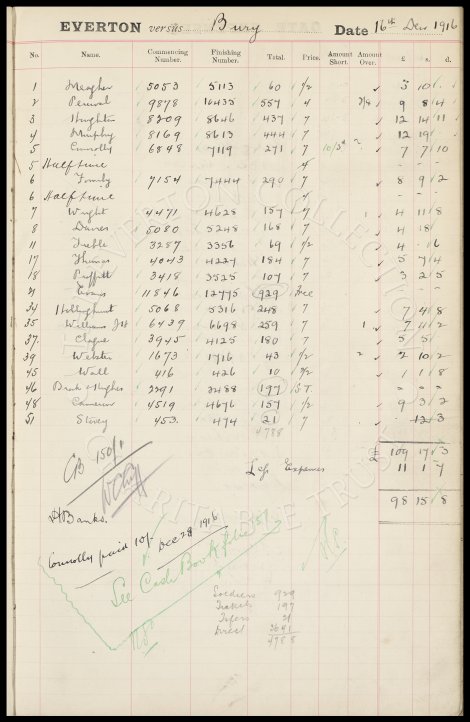 EVERTON versus Bury Date 16th Dec 1916
No. Name. Commencing Number. Finishing Number. Total. Price. Amount Short. Amount Over. £ s. d.
1 Meagher 5053 5113 60 1/2 3 10 -
2 Percival 9878 10435 557 4 9 8 4
3 Hughton 8209 8646 437 7 12 14 11
4 Murphy 8169 8613 444 7 12 19
5 Connolly 6848 7119 271 7 10/3d 7 7 10
5 Half time 4 - - -
6 Formby 7154 7444 290 7 8 9 2
6 Half time 4 - - -
7 Wright 4471 4628 157 7 1 4 11 8
8 Davies 5080 5248 168 7 4 18
11 Treble 3287 3356 69 1/2 4 - 6
17 Thomas 4043 4227 184 7 5 7 4
18 Proffitt 3418 3525 107 7 3 2 5
21 Evans 11846 12775 929 Free
34 Hollinghurst 5068 5316 248 7 7 4 8
35 Williams JH 6439 6698 259 7 1 7 11 2
37 Clague 3945 4125 180 7 5 5
39 Webster 1673 1716 43 1/2 2 10 2
45 Wall 416 426 10 1 1 8
46 Brok & Hughes 2291 2488 197 S.T. - - -
48 Cameron 4519 4676 157 1/2 9 3 2
51 Storey 453 474 21 7 12 3
4788
£ 109 17 3
CB 150/-
Less Expenses 11 1 7
98 15 8
H Banks.
Connolly paid 10/- Dec 28 1916
See Cash Book folio 151
Soldiers 929
Tickets 197
21
Direct 3641
4788